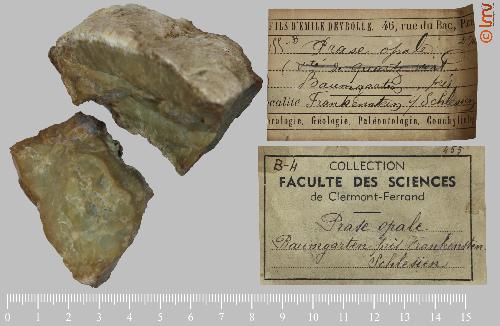 ILS D'EMILE DEYROLLE, 46, rue du Bac,
Prase opale
Baumgarten, près
Localité Frankenstein / Schlesien
éralogie, Géologie, Paléontologie, Conchyliologie
455
B-4 COLLECTION
FACULTE DES SCIENCES
de Clermont-Ferrand
Prase opale
Baumgarten près Frankenstein
Schlesien
0 1 2 3 4 5 6 7 8 9 10 11 12 13 14 15
© lmv